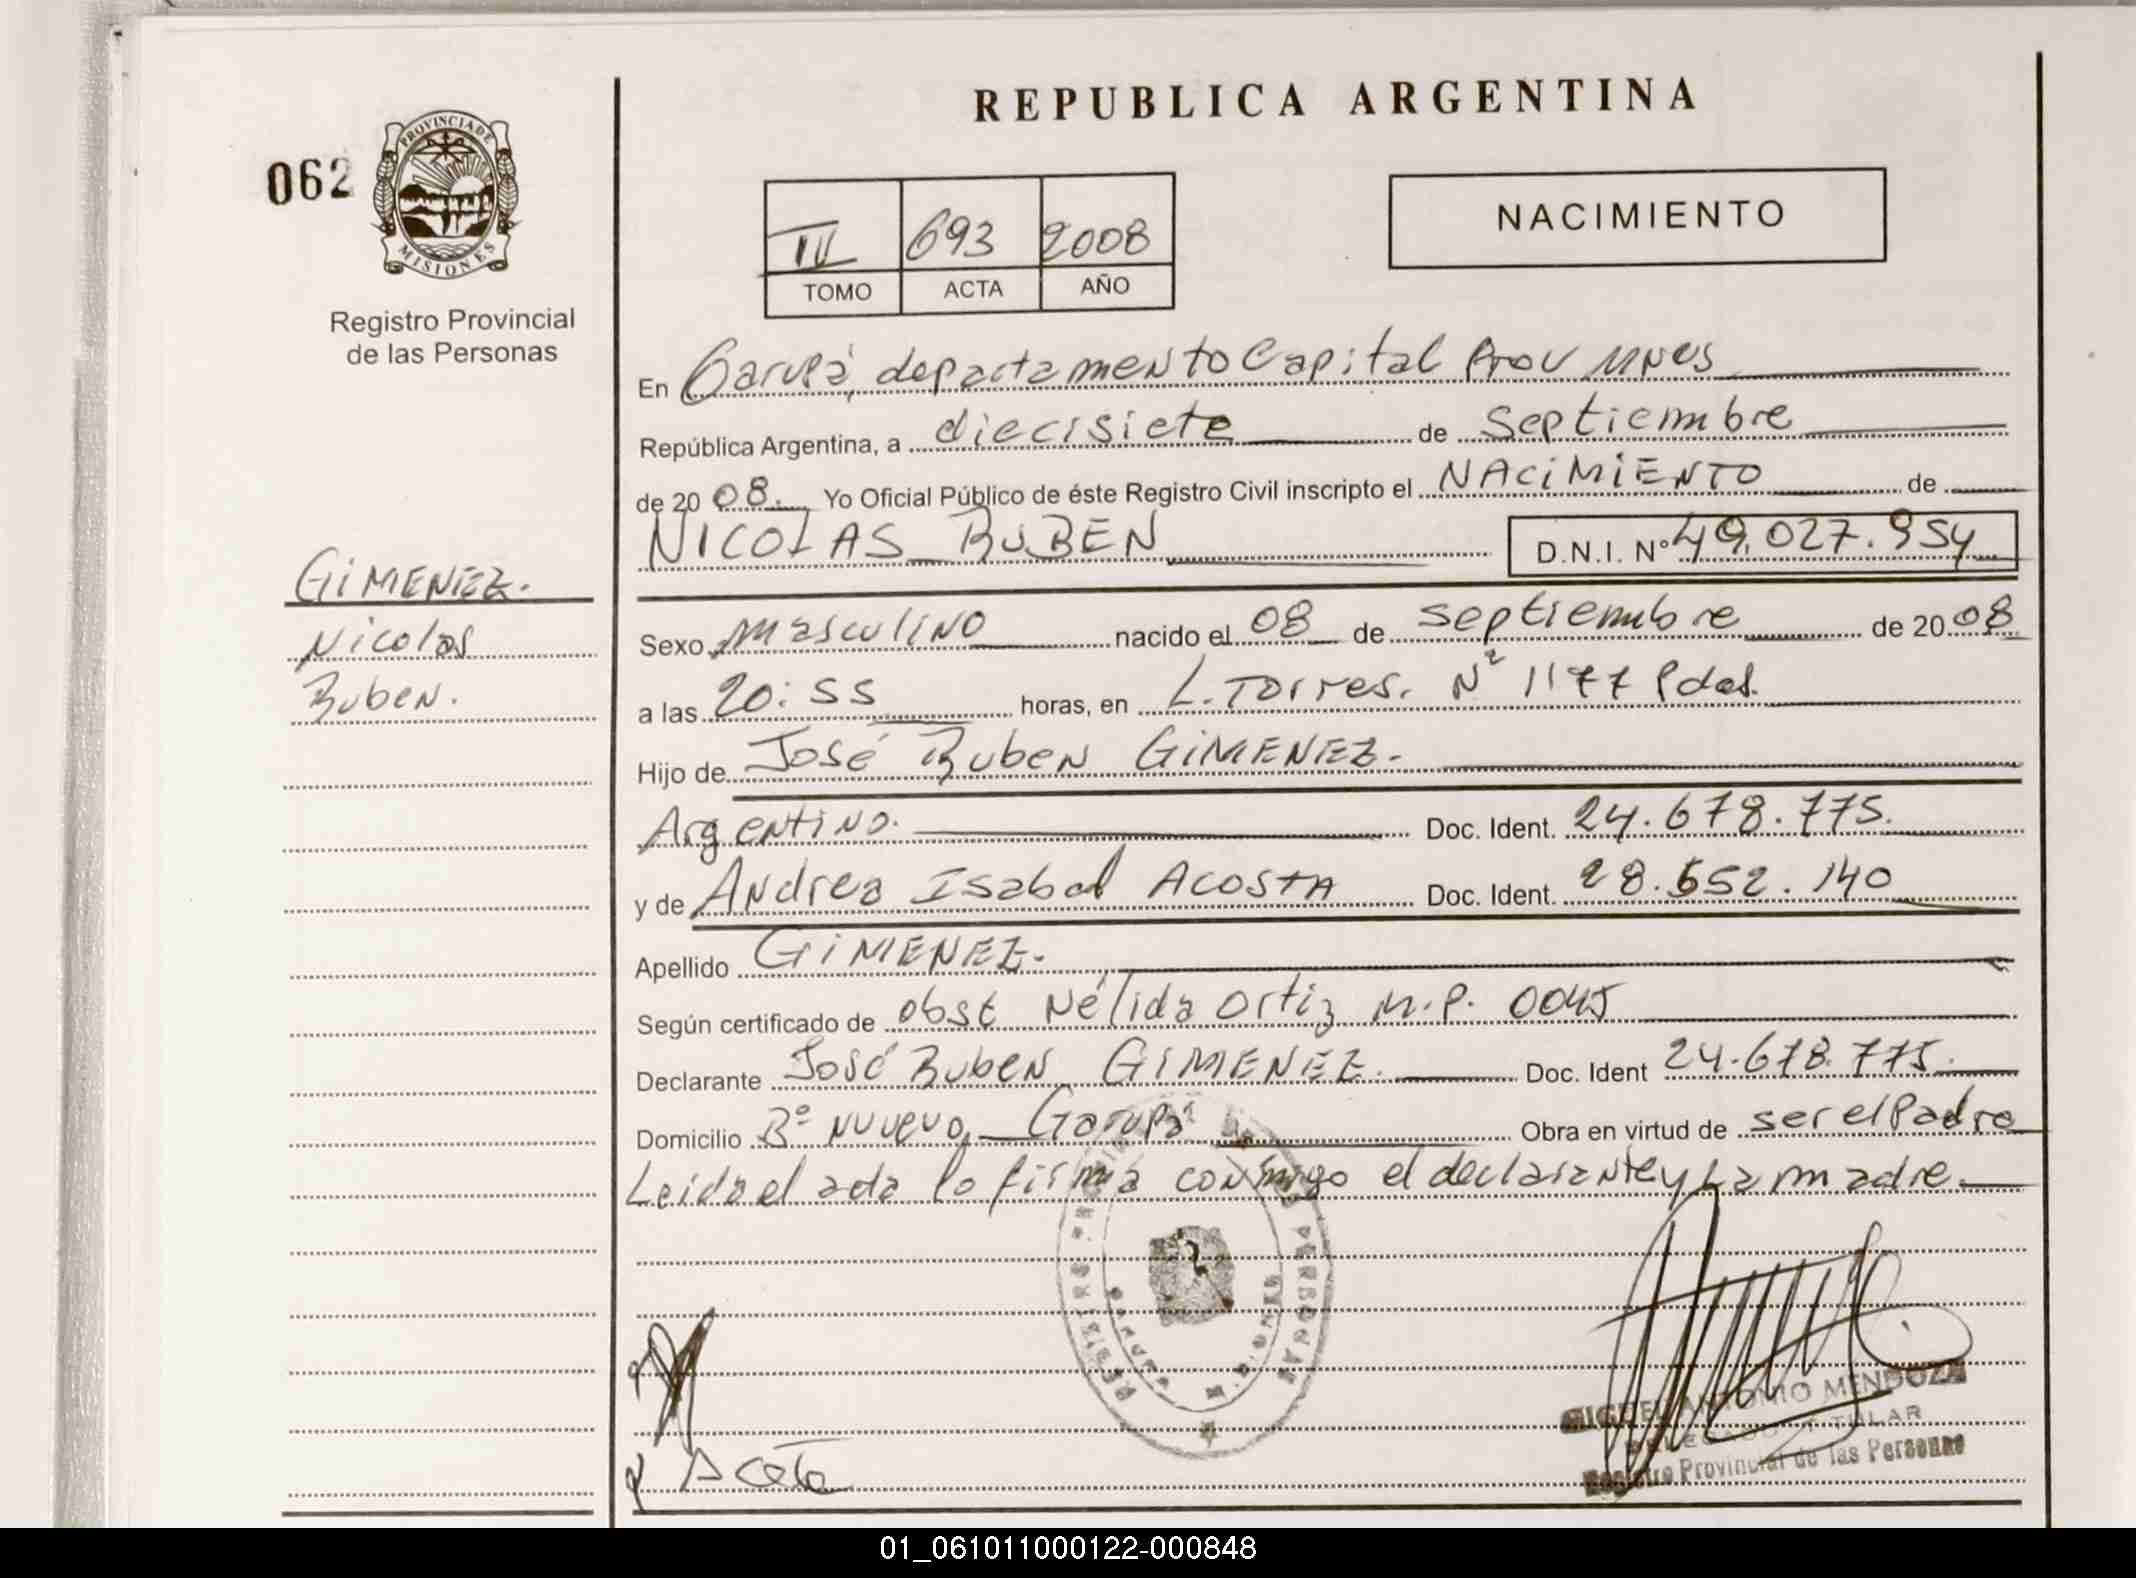 REPUBLICA ARGENTINA
062
PROVINCIA DE
MISIONES
Registro Provincial
de las Personas
693 2008
TOMO ACTA AÑO
NACIMIENTO
En Garupá, departamento Capital Prov Mnes
República Argentina, a diecisiete de septiembre
de 2008. Yo Oficial Público de éste Registro Civil inscripto el NACIMIENTO de
NICOLAS RUBEN D.N.I. Nº 49.027.954
GIMENEZ.
Nicolas
Ruben.
Sexo masculino nacido el 08 de septiembre de 2008
a las 20:55 horas, en L. Torres. Nº 1177 Pdas.
Hijo de José Ruben GIMENEZ.
Argentino. Doc. Ident. 24.678.775.
y de Andrea Isabel ACOSTA Doc. Ident. 28.652.140
Apellido GIMENEZ.
Según certificado de obst Nélida Ortiz M.P. 0045
Declarante José Ruben GIMENEZ. Doc. Ident 24.678.775.
Domicilio Bº Nuevo, Garupá Obra en virtud de ser el Padre
Leida el acta la firma conmigo el declarante y La madre.
REGISTRO PERSONAS
GARUPA
MIGUEL ANTONIO MENDOZA
DELEGADO TITULAR
Registro Provincial de las Personas
01_061011000122-000848